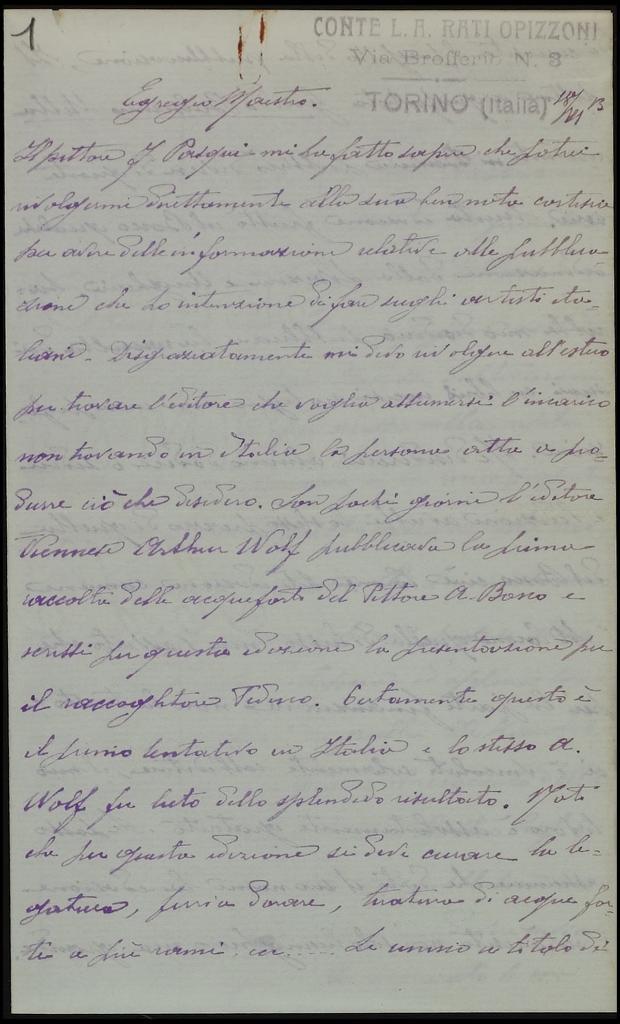 1
CONTE L. A. RATI OPIZZONI
Via Brofferio N. 3
TORINO (Italia)
13
Egregio Maestro.
Il pittore F. Pasqui mi ha fatto sapere che potrei
rivolgermi direttamente alla sua ben nota cortesia
per avere delle informazione relative alle pubblica
zione che ho intenzione di fare sugli artisti ita-
liani. Disgraziatamente mi devo rivolgere all'estero
per trovare l'editore che voglia assumersi l'incarico
non trovando in Italia la persona atta a pro-
durre ciò che desidero. Son pochi giorni l'editore
Viennese Arthur Wolf pubblicava la prima
raccolta delle acqueforti del Pittore A. Bosco e
scrissi per questa edizione la presentazione per
il raccoglitore Tedesco. Certamente questo è
il primo tentativo in Italia e lo stesso A.
Wolf fu lieto dello splendido risultato. Noti
che per questa edizione si deve curare la le-
gatura, fervia dorare, tiratura di acque for-
ti a più rami ec..... Le unisco a titolo di